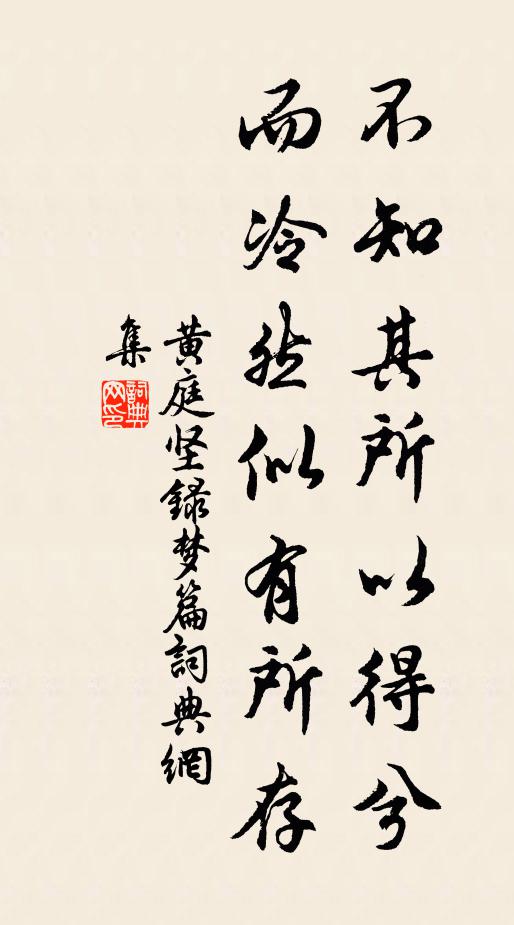 不知其所以得兮
而冷然似有所存
黄庭坚録梦篇詞典網
集
詞典網印